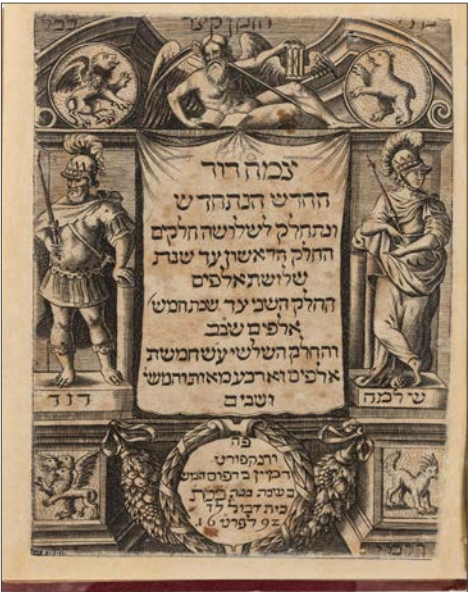 הזמן קצר
צמח דוד
החדש הנתחדש
ונתחלק לשלושה חלקים
החלק הראשון עד שנת
שלושת אלפים
החלק השני עד שנת חמש
אלפים שנב
והחלק השלשי עש חמשת
אלפים וארבע מאות וחמשי
ושנים
דוד
שלמה
פה
ורנקפורט
דמיין בדפוס חמש
בשנת בנה
בית דבול לד
לפרט 1692